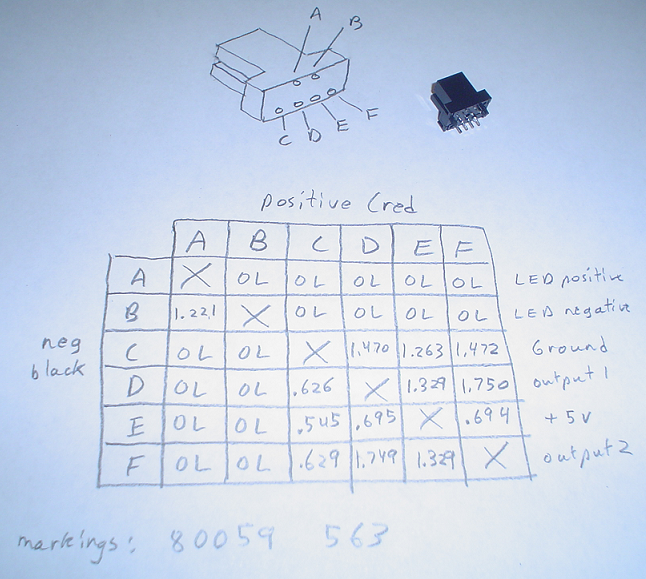 A
B
C D E F
Positive (red
A B C D E F
A X OL OL OL OL OL LED positive
B 1.221 X OL OL OL OL LED negative
neg
black
C OL OL X 1.470 1.263 1.472 Ground
D OL OL .626 X 1.329 1.750 output 1
E OL OL .545 .695 X .694 +5v
F OL OL .629 1.749 1.329 X output 2
markings: 80059 563